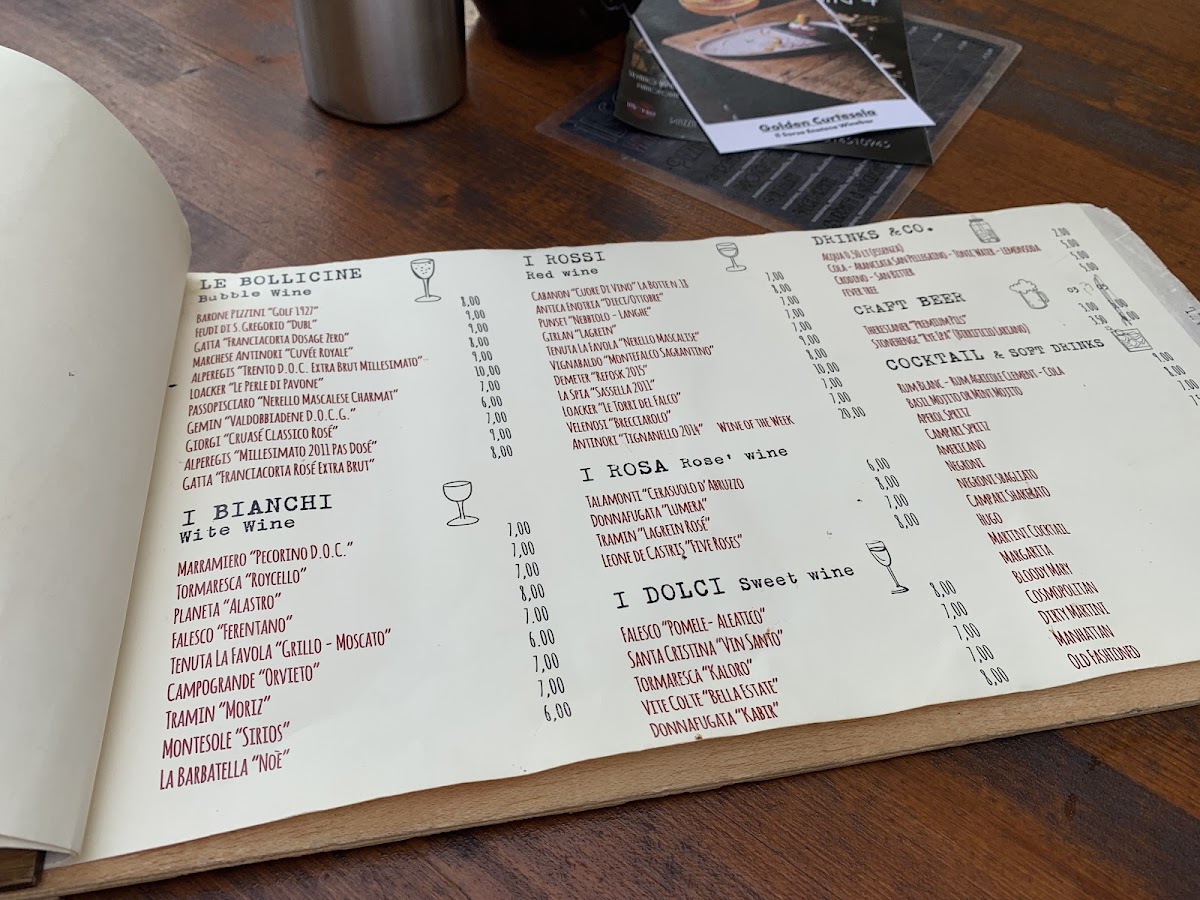 LE BOLLICINE
Bubble Wine
BARONE PIZZINI "GOLF 1927" 8,00
FEUDI DI S.GREGORIO "DUBL" 9,00
GATTA "FRANCIACORTA DOSAGE ZERO" 9,00
MARCHESE ANTINORI "CUVÉE ROYALE" 8,00
ALPEREGIS "TRENTO D.O.C. EXTRA BRUT MILLESIMATO" 9,00
LOACKER "LE PERLE DI PAVONE" 10,00
PASSOPISCIARO "NERELLO MASCALESE CHARMAT" 7,00
GEMIN "VALDOBBIADENE D.O.C.G." 6,00
GIORGI "CRUASÉ CLASSICO ROSÉ" 7,00
ALPEREGIS "MILLESIMATO 2011 PAS DOSÉ" 9,00
GATTA "FRANCIACORTA ROSÉ EXTRA BRUT" 8,00
I BIANCHI
Wite Wine
MARRAMIERO "PECORINO D.O.C." 7,00
TORMARESCA "ROYCELLO" 7,00
PLANETA "ALASTRO" 7,00
FALESCO "FERENTANO" 8,00
TENUTA LA FAVOLA "GRILLO - MOSCATO" 7.00
CAMPOGRANDE "ORVIETO" 6.00
TRAMIN "MORIZ" 7,00
MONTESOLE "SIRIOS" 7,00
LA BARBATELLA "NOÈ" 6,00
I ROSSI
Red wine
CABANON "CUORE DI VINO" LA BOTTE N.18 7,00
ANTICA ENOTRIA "DIECI/OTTOBRE" 8,00
PUNSET "NEBBIOLO - LANGHE" 7,00
GIRLAN "LAGREIN" 7,00
TENUTA LA FAVOLA "NERELLO MASCALISE" 7,00
VIGNABALDO "MONTEFALCO SAGRANTINO" 9,00
DEMETER "REFOSK 2015" 8,00
LA SPIA "SASSELLA 2011" 10,00
LOACKER "LE TORRI DEL FALCO" 7,00
VELENOSI "BRECCIAROLO" 7,00
ANTINORI "TIGNANELLO 2014" WINE OF THE WEEK 20,00
I ROSA Rose' wine
TALAMONTI "CERASUOLO D'ABRUZZO 6,00
DONNAFUGATA "LUMERA" 8,00
TRAMIN "LAGREIN ROSÉ" 7,00
LEONE DE CASTRIS "FIVE ROSES" 8,00
I DOLCI Sweet wine
FALESCO "POMELE- ALEATICO" 8,00
SANTA CRISTINA "VIN SANTO" 7,00
TORMARESCA "KALORO" 7,00
VITE COLTE "BELLA ESTATE" 7,00
DONNAFUGATA "KABIR" 8,00
DRINKS &CO.
ACQUA 0,50 LT (ESSENZA) 2,00
COLA - ARANCIATA SAN PELLEGRINO - TONIC WATER - LEMONSODA 5,00
CRODINO - SAN BITTER 5,00
FEVER TREE 5,00
CRAFT BEER
THERESIANER "PREMIUM PILS" 3,00
STONEHENGE "RYE IPA" 3,50
COCKTAIL & SOFT DRINKS
RUM BLANC - RUM AGRICOLE CLEMENT - COLA 9,00
BASIL MOJITO OR MINT MOJITO 8,00
APEROL SPRITZ
CAMPARI SPRITZ
AMERICANO
NEGRONI
NEGRONI SBAGLIATO
CAMPARI SHAKERATO
HUGO
MARTINI COCKTAIL
MARGARITA
BLOODY MARY
COSMOPOLITAN
DIRTY MARTINI
MANHATTAN
OLD FASHIONED
Golden Curtesela